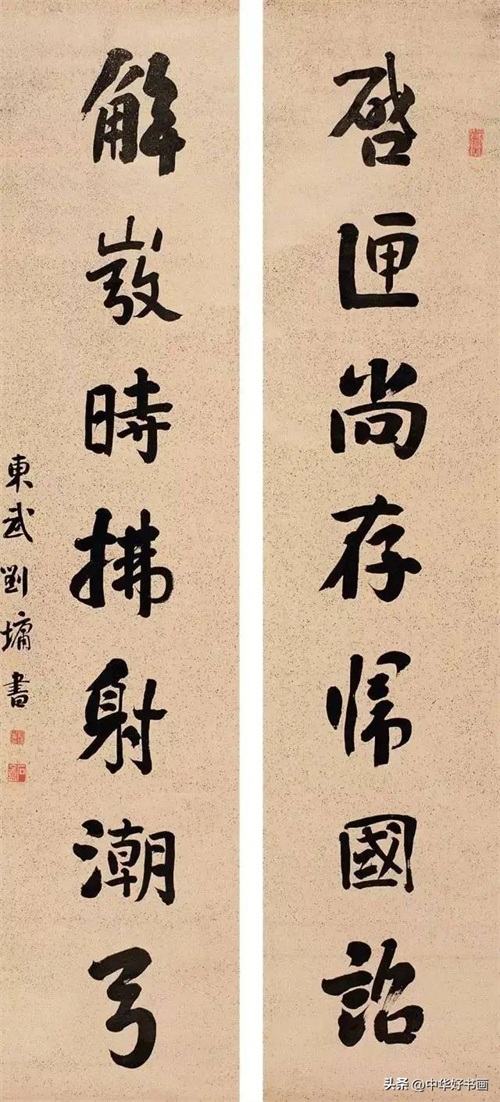 啓匣尚存帰國詔
解弢時拂射潮弓
東武劉墉書
头条 @中华好书画